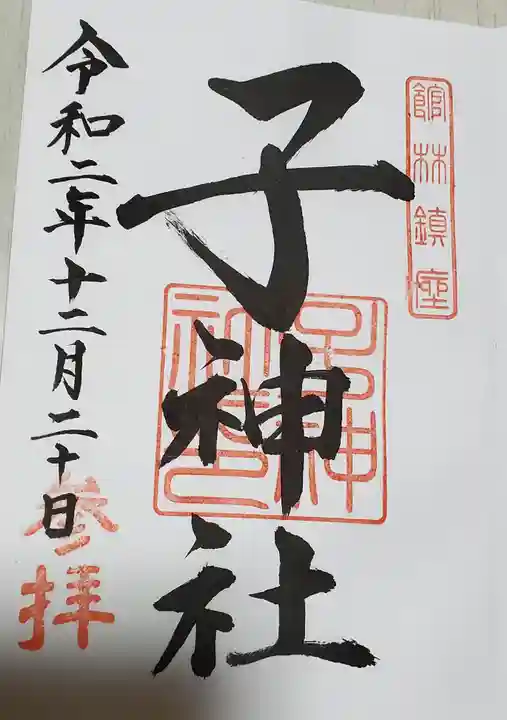 館林鎮座
子神社
子神社印
令和二年十二月二十日
参拝